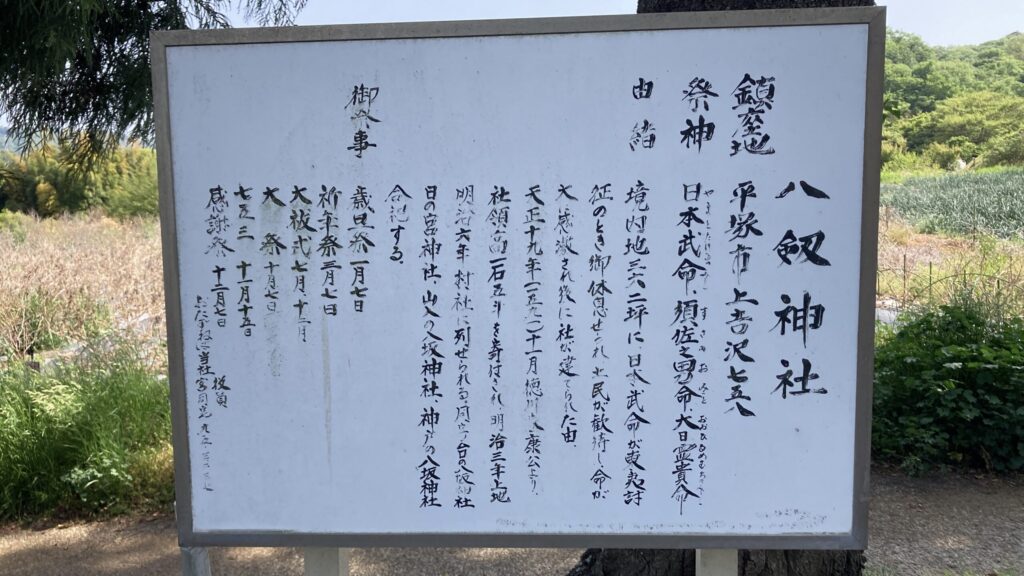 八剱神社
鎮座地 平塚市上吉沢七五八
祭神 日本武命、須佐之男命、大日孁貴命
由緒 境内地三六二坪に日本武命が東夷討
征のとき御休息せられ土民が歓待し命が
大感激され後に社が建てられた由
天正十九年一五九一十一月徳川家康公より、
社領高一石五斗を寄付され明治三年上地
明治六年村社に列せられる同字台の八坂神社
日の宮神社、山入の八坂神社、神戸の八坂神社
合祀する。
御祭事
歳旦祭 一月一日
祈年祭 二月七日
大祓式 七月
大祭 十月七日
七五三 十一月十五日
感謝祭 十二月七日
役員
当社宮司